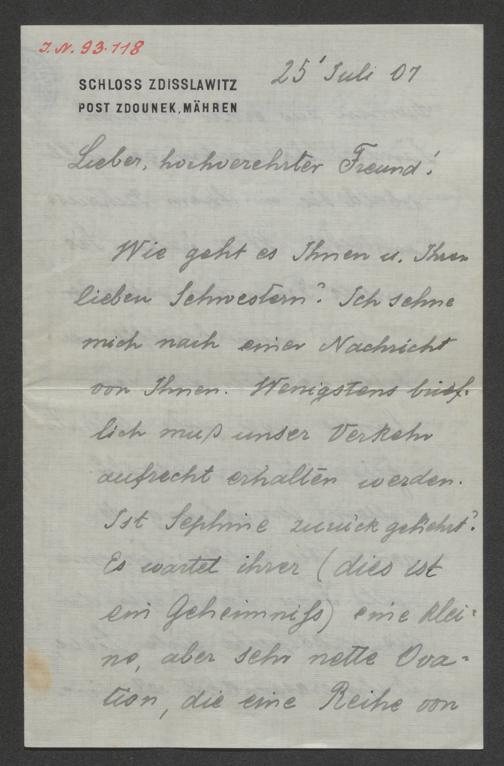 I. N. 93.118
25' Juli 07
SCHLOSS ZDISSLAWITZ
POST ZDOUNEK, MÄHREN
Lieber, hochverehrter Freund!
Wie geht es Ihnen u. Ihren
lieben Schwestern? Ich sehne
mich nach einer Nachricht
von Ihnen. Wenigstens brief-
lich muß unser Verkehr
aufrecht erhalten werden.
Ist Sephine zurückgekehrt?
Es wartet ihrer (dies ist
ein Geheimniß) eine klei-
ne, aber sehr nette Ova-
tion, die eine Reihe von